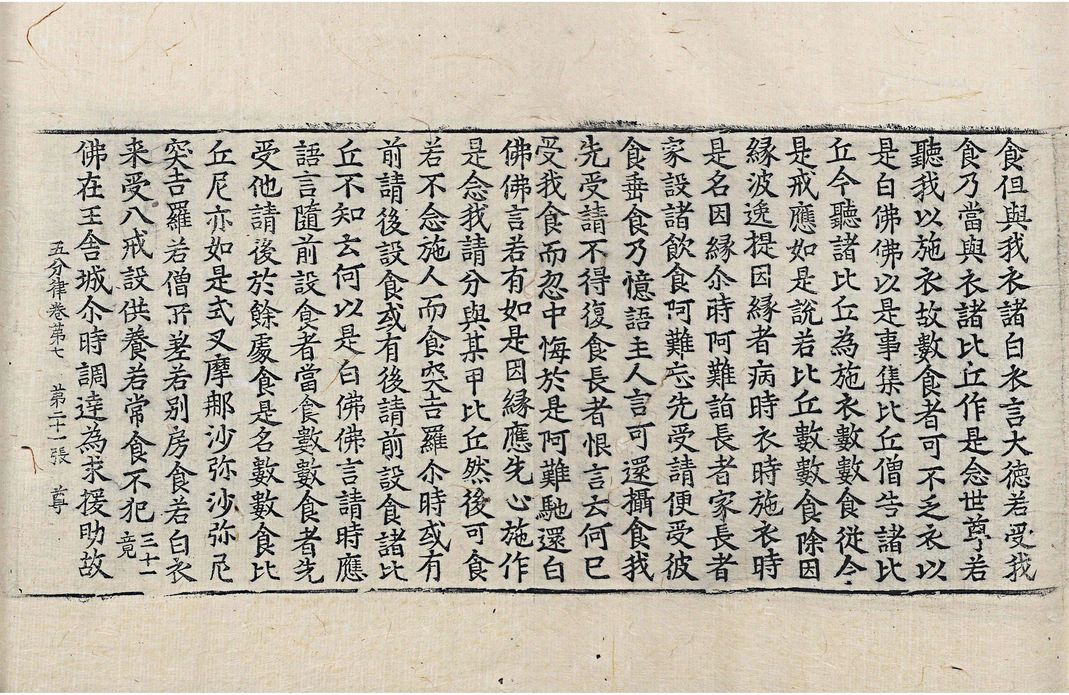 食但與我衣諸白衣言大德若受我
食乃當與衣諸比丘作是念世尊若
聽我以施衣故數食者可不乏衣以
是白佛佛以是事集比丘僧告諸比
丘今聽諸比丘為施衣數數食從今
是戒應如是說若比丘數數食除因
縁波逸提因縁者病時衣時施衣時
是名因縁尒時阿難詣長者家長者
家設諸飲食阿難忘先受請便受彼
食垂食乃憶語主人言可還攝食我
先受請不得復食長者恨言云何已
受我食而忽中悔於是阿難馳還白
佛佛言若有如是因縁應先心施作
是念我請分與某甲比丘然後可食
若不念施人而食突吉羅尒時或有
前請後設食或有後請前設食諸比
丘不知云何以是白佛佛言請時應
語言隨前設食者當食數數食者先
受他請後於餘處食是名數數食比
丘尼亦如是式叉摩那沙弥沙弥尼
突吉羅若僧所差若別房食若白衣
来受八戒設供養若常食不犯三十一竟
佛在王舍城尒時調達為求援助故
五分律卷苐七 苐二十一張 尊